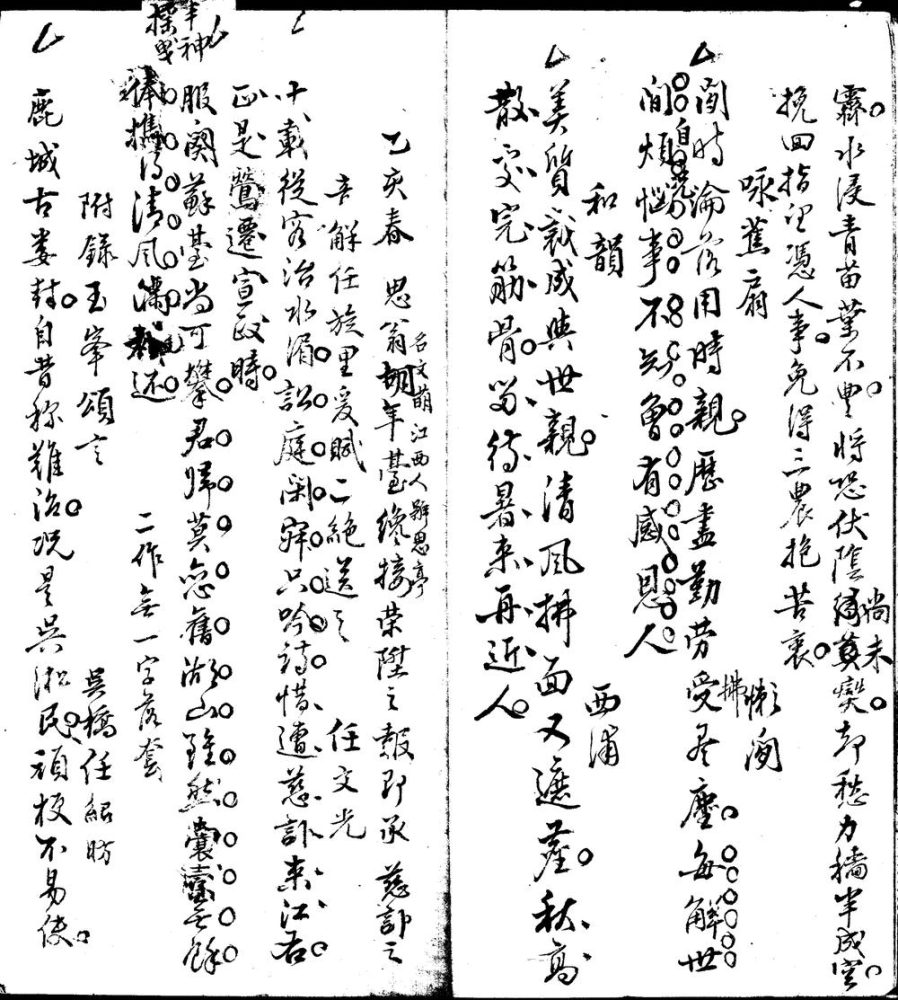 霖水浸青苗葉不豐將恐伏陰尚未燮却愁力穡半成空
挽回指望憑人事免得三農抱苦衷
咏蕉扇 懶閒
閒時淪落用時親歷盡勤勞受拂塵每解世
間煩惱事不知曾有感恩人
和韻 西浦
美質裁成與世親清風拂面又遮塵秋高
散交完筋骨留待暑來再近人
乙亥春 思翁胡年臺名文萌江西人號思亭纔接荣陞之報即承慈訃之
音解任旋里爰賦二絶送之 任文光
十載從容治水湄訟庭閑寂只吟詩惜遭慈訃来江右
正是鶯遷宣政時
服闋蘇臺尚可攀君歸莫恋舊湖山雖然囊橐無餘
俸攜得清風滿載还
半神操曳
二作無一字落套
附錄玉峯頌言 吳橋任紹昉
鹿城古婁封自昔称難治况是吳淞民頑梗不易使